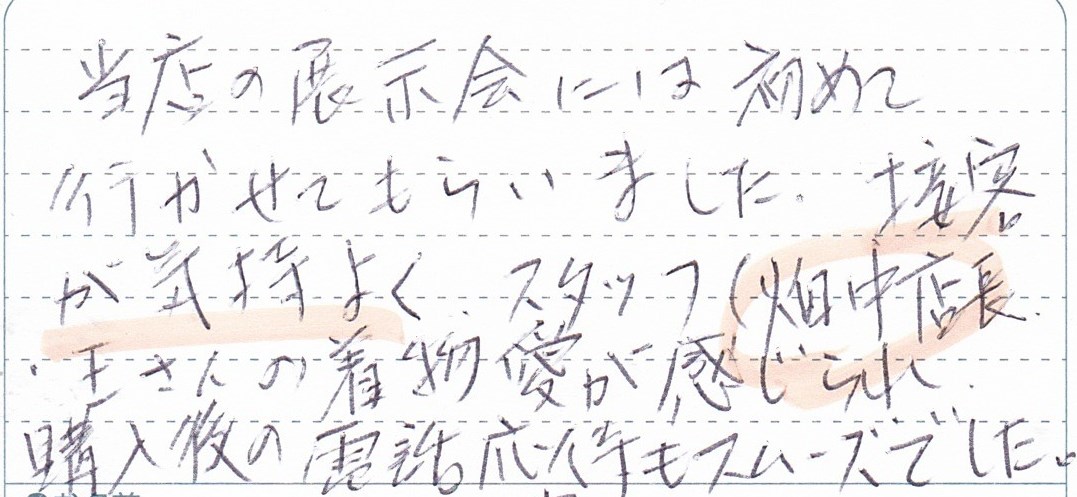 当店の展示会には初めて
行かせてもらいました。接客
が気持よく、スタッフ(畑中店長
・王さんの着物愛が感じられ、
購入後の電話応対等もスムーズでした。